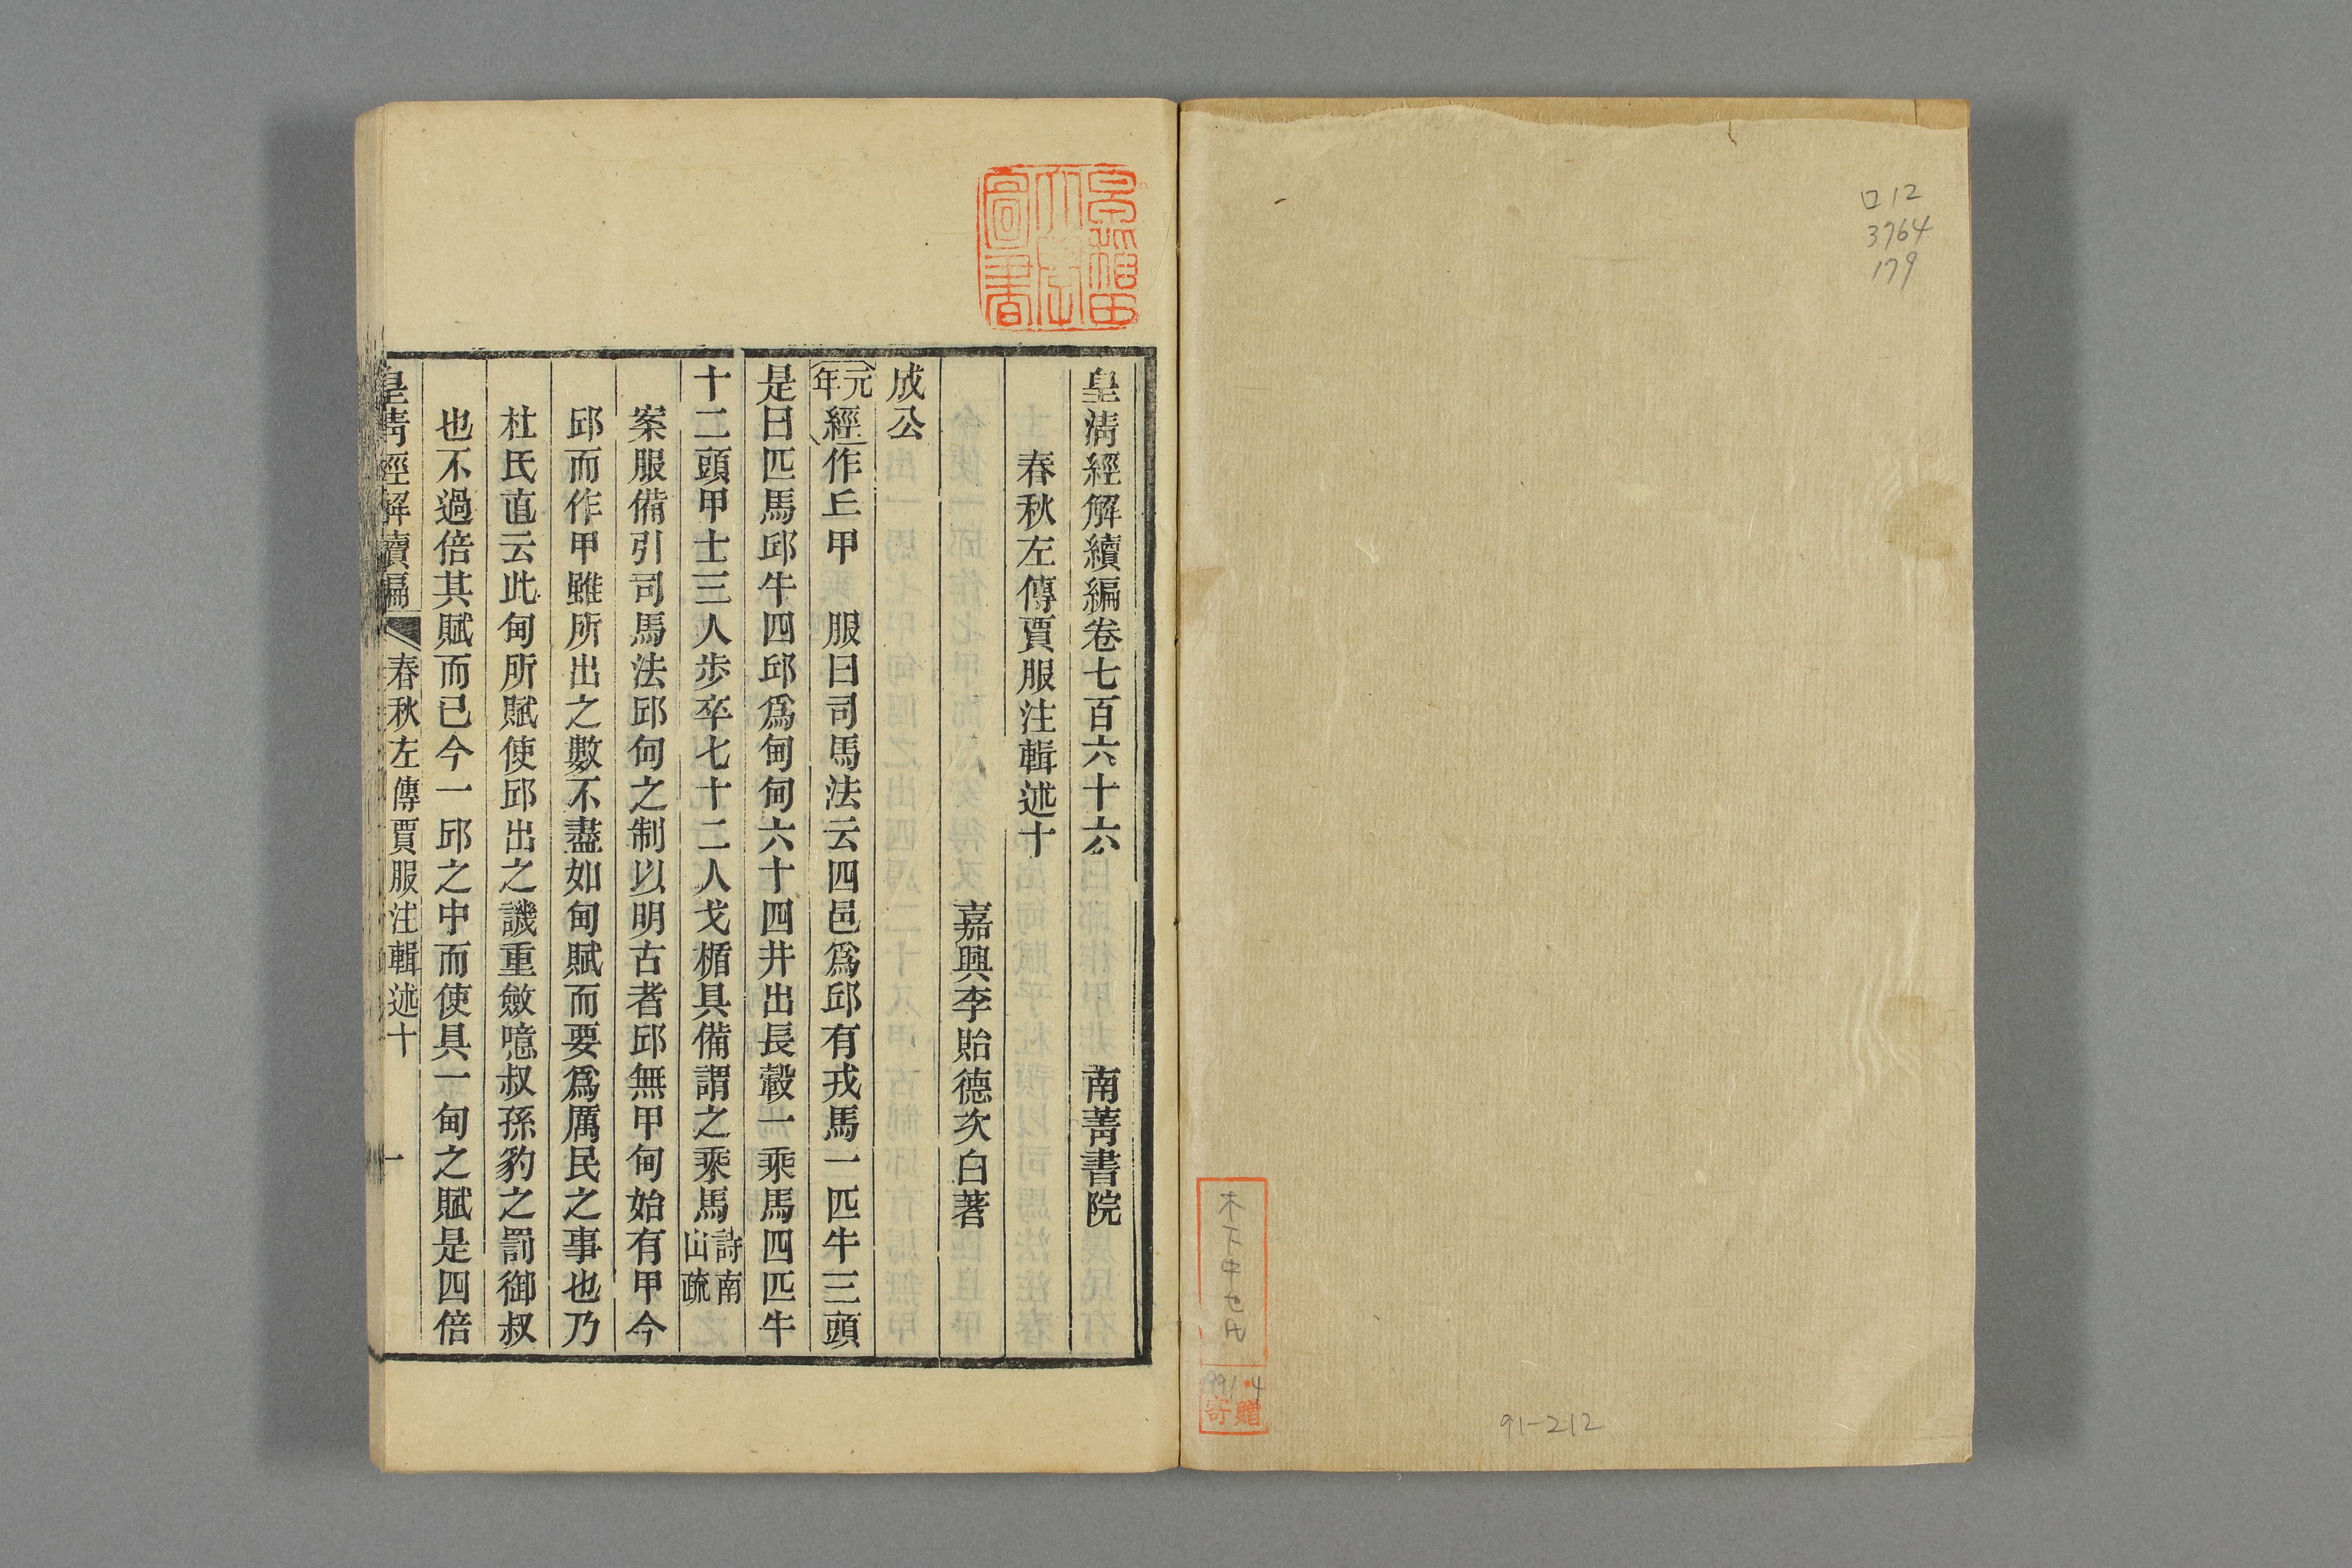 口12
3764
179
木下中也氏
4
寄贈
91-212
早稲田大學圖書
皇清經解續編卷七百六十六 南菁書院
春秋左傳賈服注輯述十
嘉興李貽德次白著
成公
元年經作丘甲 服曰司馬法云四邑爲邱有戎馬一匹牛三頭
是曰匹馬邱牛四邱爲甸甸六十四井出長轂一乘馬四匹牛
十二頭甲士三人步卒七十二人戈楯具備謂之乘馬詩南山疏
案服備引司馬法邱甸之制以明古者邱無甲甸始有甲今
邱而作甲雖所出之數不盡如甸賦而要爲厲民之事也乃
杜氏直云此甸所賦使邱出之譏重斂噫叔孫豹之罰御叔
也不過倍其賦而已今一邱之中而使具一甸之賦是四倍
皇清經解續編 春秋左傳賈服注輯述十 一